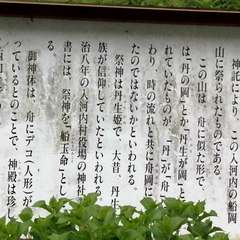 神託により、この入河内の船岡
山に祭られたものである。
この山は、舟に似た形で、
は「丹の岡」とか「丹生が岡」と
れていたものが、「丹」が「舟」に
わり、時の流れと共に舟岡
たのではないかといわれる。
祭神は丹生姫で、大昔、丹生
族が信仰していたといわれる
治八年の入河内村役場の神社
書には、祭神を「船玉命」とし
る。
御神体は、舟にデコ(人形)が
っているとのことで、神殿は珍し